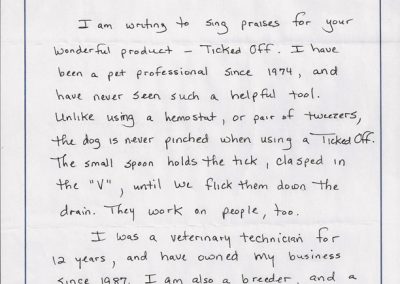 I am writing to sing praises for your
wonderful product - Ticked Off. I have
been a pet professional since 1974, and
have never seen such a helpful tool.
Unlike using a hemostat, or pair of tweezers,
the dog is never pinched when using a Ticked Off.
The small spoon holds the tick, clasped in
the "V", until we flick them down the
drain. They work on people, too.
I was a veterinary technician for
12 years, and have owned my business
since 1987. I am also a breeder, and a